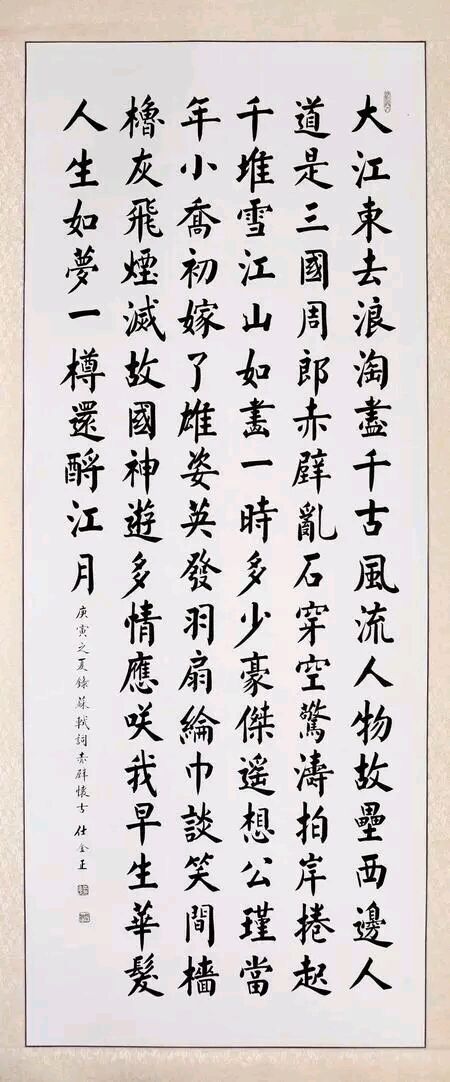 大江東去浪淘盡千古風流人物故壘西邊人
道是三國周郎赤壁亂石穿空驚濤拍岸捲起
千堆雪江山如畫一時多少豪傑遙想公瑾當
年小喬初嫁了雄姿英發羽扇綸巾談笑間檣
櫓灰飛煙滅故國神遊多情應咲我早生華髮
人生如夢一樽還酹江月
庚寅之夏錄蘇軾詞赤壁懷古 仕金玉